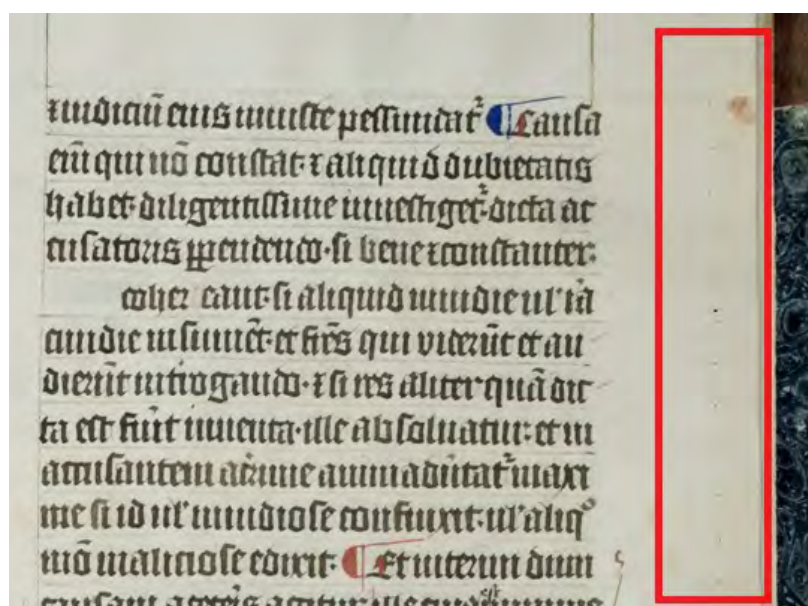 ⁊ iudiciū eius iniuste pessundat᷑ ¶ Causa
em̄ qui nō constat ⁊ aliquid dubietatis
habet diligentissime inuestiget᷑ dicta ac
cusatoris ꝑpendendo · si bene ⁊ constanter
coher eant si aliquid inuidie ul' ia
et fr̄es qui viderūt et au
dierūt introgando · ⁊ si res aliter quā dic
ta est fūit inuenta · ille absoluatur et in
accusantem acrime animaduitat᷑ maxi
me si id ul' inuidiose confinxit ul' aliqº
mō maliciose edixit · ¶ Et iterum dum